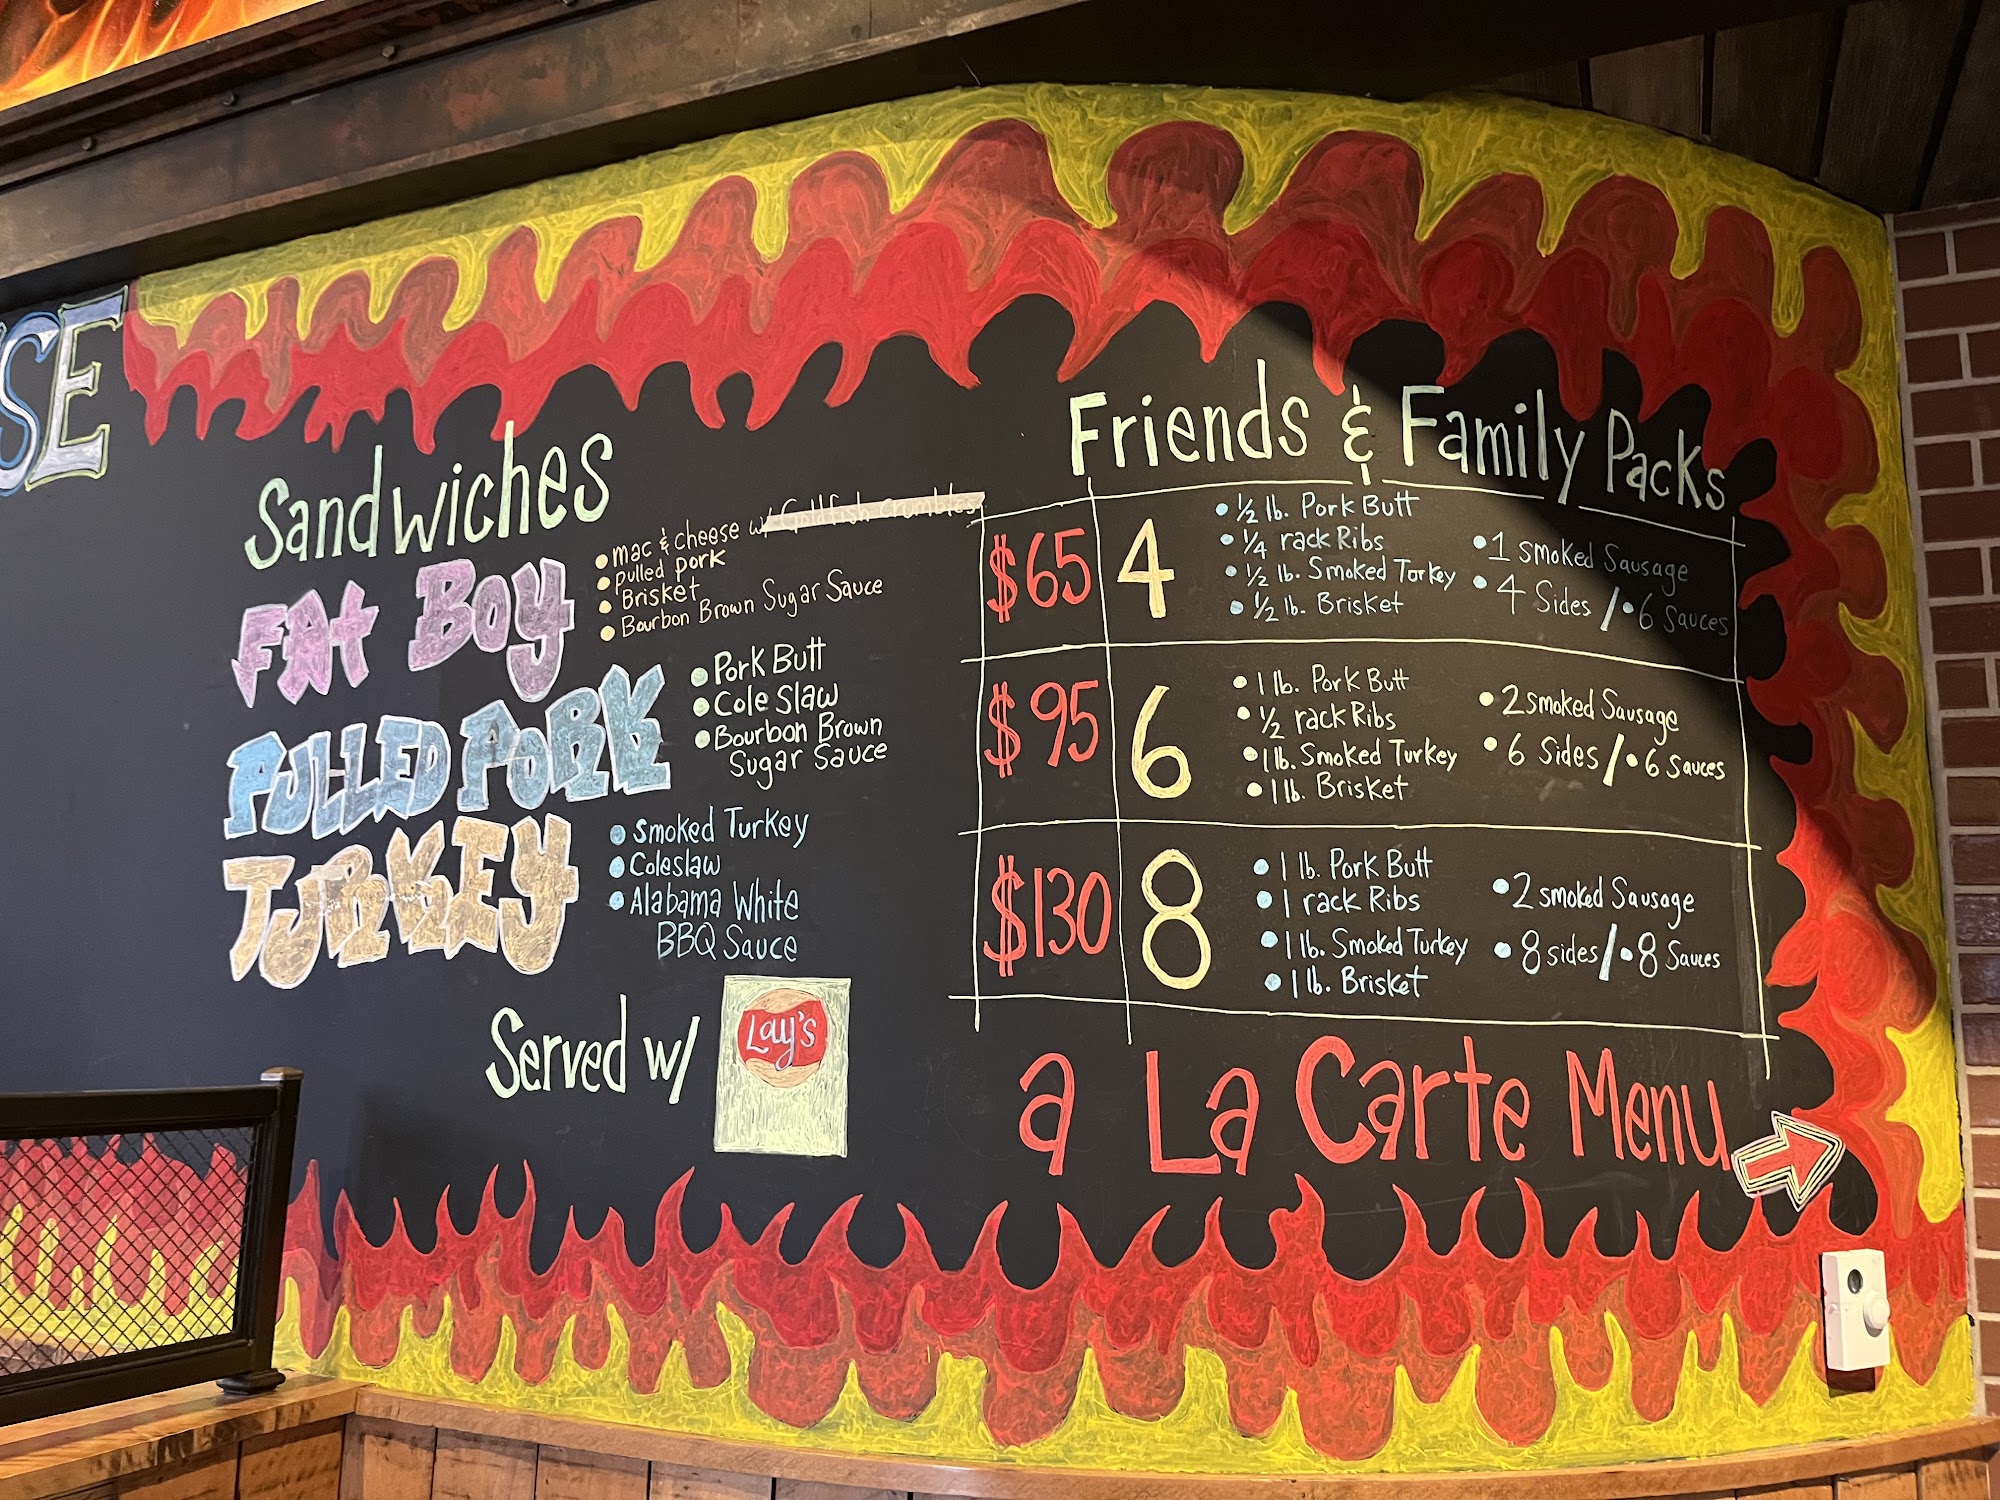 SE
Sandwiches
FAt BOY
• mac & cheese w/ Goldfish Crumbles
• pulled pork
• Brisket
• Bourbon Brown Sugar Sauce
PULLED PORK
• Pork Butt
• Cole Slaw
• Bourbon Brown
Sugar Sauce
TURKEY
• Smoked Turkey
• Coleslaw
• Alabama White
BBQ Sauce
Served w/ Lay's
Friends & Family Packs
$65 4
• 1/2 lb. Pork Butt
• 1/4 rack Ribs
• 1/2 lb. Smoked Turkey
• 1/2 lb. Brisket
• 1 smoked Sausage
• 4 Sides / • 6 Sauces
$95 6
• 1 lb. Pork Butt
• 1/2 rack Ribs
• 1 lb. Smoked Turkey
• 1 lb. Brisket
• 2 smoked Sausage
• 6 Sides / • 6 Sauces
$130 8
• 1 lb. Pork Butt
• 1 rack Ribs
• 1 lb. Smoked Turkey
• 1 lb. Brisket
• 2 smoked Sausage
• 8 sides / • 8 Sauces
a La Carte Menu